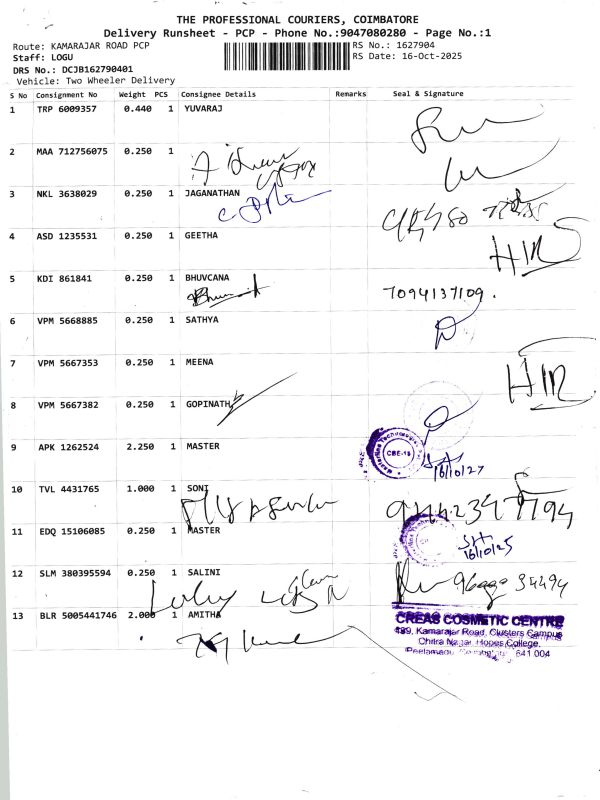 THE PROFESSIONAL COURIERS, COIMBATORE
Delivery Runsheet - PCP - Phone No.:9047080280 - Page No.:1
Route: KAMARAJAR ROAD PCP
RS No.: 1627904
Staff: LOGU
RS Date: 16-Oct-2025
DRS No.: DCJB162790401
Vehicle: Two Wheeler Delivery
S No Consignment No Weight PCS Consignee Details Remarks Seal & Signature
1 TRP 6009357 0.440 1 YUVARAJ
2 MAA 712756075 0.250 1
3 NKL 3638029 0.250 1 JAGANATHAN
4 ASD 1235531 0.250 1 GEETHA
5 KDI 861841 0.250 1 BHUVCANA
7094137109.
6 VPM 5668885 0.250 1 SATHYA
7 VPM 5667353 0.250 1 MEENA
8 VPM 5667382 0.250 1 GOPINATH
9 APK 1262524 2.250 1 MASTER
CBE-18
10 TVL 4431765 1.000 1 SONI
11 EDQ 15106085 0.250 1 MASTER
16/10/25
12 SLM 380395594 0.250 1 SALINI
13 BLR 5005441746 2.000 1 AMITHA
CREAS COSMETIC CENTRE
499, Kamarajar Road, Clusters Campus
Chitra Nagar, Hopes College,
Peelamedu, 641 004